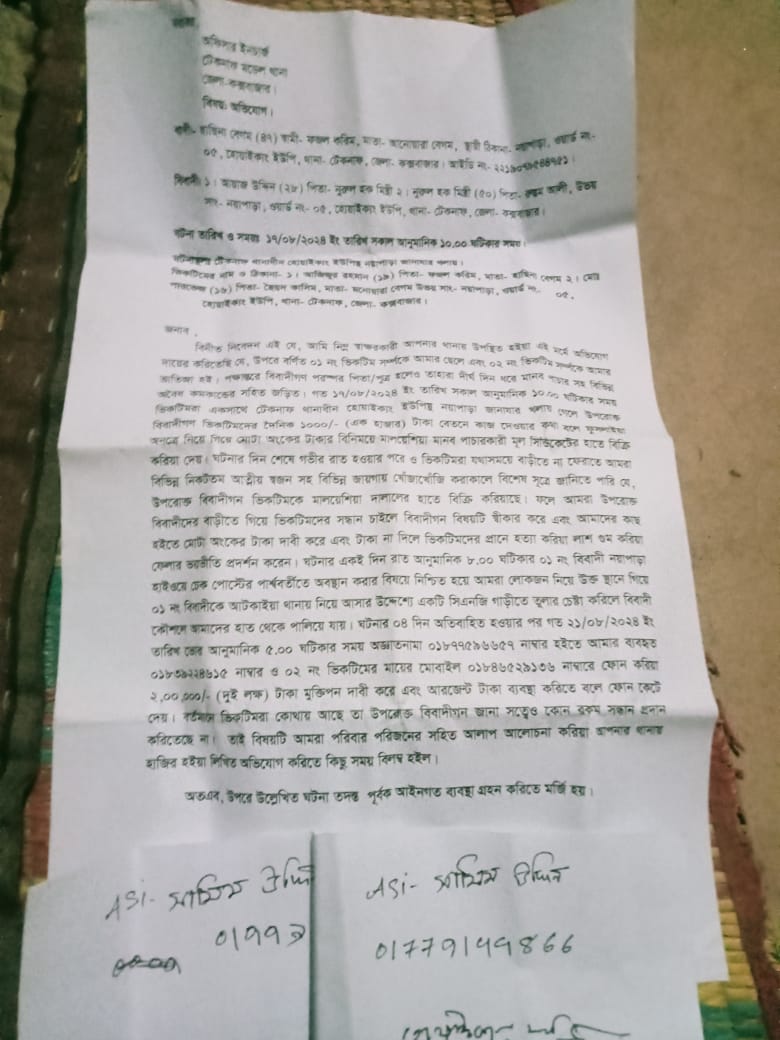 বরাবর
অফিসার ইনচার্জ
টেকনাফ মডেল থানা
জেলা-কক্সবাজার।
বিষয়: অভিযোগ।
বাদী- হাছিনা বেগম (৪৭) স্বামী- ফজল করিম, মাতা- আনোয়ারা বেগম, স্থায়ী ঠিকানা- নয়াপাড়া, ওয়ার্ড নং-
০৫, হোয়াইক্যং ইউপি, থানা- টেকনাফ, জেলা- কক্সবাজার। আইডি নং-
বিবাদী ১। আয়াজ উদ্দিন (২৮) পিতা- নুরুল হক মিস্ত্রী ২। নুরুল হক মিস্ত্রী (৫০) পিতা- আলী, উভয়
সাং- নয়াপাড়া, ওয়ার্ড নং- ০৫, হোয়াইক্যং ইউপি, থানা- টেকনাফ, জেলা- কক্সবাজার।
ঘটনা তারিখ ও সময়ঃ ১৭/০৮/২০২৪ ইং তারিখ সকাল আনুমানিক ১০.০০ ঘটিকার সময়।
ঘটনাস্থলঃ টেকনাফ থানাধীন হোয়াইক্যং ইউপিস্থ নয়াপাড়া জানাযার
ভিকটিমের নাম ও ঠিকানা- ১। আজিজুর রহমান (১৯) পিতা- ফজল করিম, মাতা- হাছিনা বেগম ২। মোঃ
পারভেজ (১৬) পিতা- ছৈয়দ কাসিম, মাতা- মনোয়ারা বেগম উভয় সাং- নয়াপাড়া, ওয়ার্ড নং- ০৫,
হোয়াইক্যং ইউপি, থানা- টেকনাফ, জেলা- কক্সবাজার।
জনাব,
বিনীত নিবেদন এই যে, আমি নিম্ন স্বাক্ষরকারী আপনার থানায় উপস্থিত হইয়া এই মর্মে অভিযোগ
দায়ের করিতেছি যে, উপরে বর্ণিত ০১ নং ভিকটিম সর্ম্পকে আমার ছেলে এবং ০২ নং ভিকটিম সর্ম্পকে আমার
ভাতিজা হই। পক্ষান্তরে বিবাদীগণ পরস্পর পিতা/পুত্র হলেও তাহারা দীর্ঘ দিন ধরে মানব পাচার সহ বিভিন্ন
অবৈধ কর্মকান্ডের সহিত জড়িত। গত ১৭/০৮/২০২৪ ইং তারিখ সকাল আনুমানিক ১০.০০ ঘটিকার সময়
ভিকটিমরা একসাথে টেকনাফ থানাধীন হোয়াইক্যং ইউপিস্থ নয়াপাড়া জানাযার গেলে উপরোক্ত
বিবাদীগন ভিকটিমদের দৈনিক ১০০০/- (এক হাজার) টাকা বেতনে কাজ দেওয়ার কথা বলে ফুসলাইয়া
অন্যত্রে নিয়ে গিয়ে মোটা অংকের টাকার বিনিময়ে মালয়েশিয়া মানব পাচারকারী মূল সিন্ডিকেটের হাতে বিক্রি
করিয়া দেয়। ঘটনার দিন শেষে গভীর রাত হওয়ার পরে ও ভিকটিমরা যথাসময়ে বাড়ীতে না ফেরাতে আমরা
বিভিন্ন নিকটতম আত্নীয় স্বজন সহ বিভিন্ন জায়গায় খোঁজাখোঁজি করাকালে বিশেষ সূত্রে জানিতে পারি যে,
উপরোক্ত বিবাদীগন ভিকটিমকে মালয়েশিয়া দালালের হাতে বিক্রি করিয়াছে। ফলে আমরা উপরোক্ত
বিবাদীদের বাড়ীতে গিয়ে ভিকটিমদের সন্ধান চাইলে বিবাদীগন বিষয়টি স্বীকার করে এবং আমাদের কাছ
হইতে মোটা অংকের টাকা দাবী করে এবং টাকা না দিলে ভিকটিমদের প্রানে হত্যা করিয়া লাশ গুম করিয়া
ফেলার ভয়ভীতি প্রদর্শন করেন। ঘটনার একই দিন রাত আনুমানিক ৮.০০ ঘটিকার ০১ নং বিবাদী নয়াপাড়া
হাইওয়ে চেক পোস্টের পার্শ্ববর্তীতে অবস্থান করার বিষয়ে নিশ্চিত হয়ে আমরা লোকজন নিয়ে উক্ত স্থানে গিয়ে
০১ নং বিবাদীকে আটকাইয়া থানায় নিয়ে আসার উদ্দেশ্যে একটি সিএনজি গাড়ীতে তুলার চেষ্টা করিলে বিবাদী
কৌশলে আমাদের হাত থেকে পালিয়ে যায়। ঘটনার ০৪ দিন অতিবাহিত হওয়ার পর গত ২১/০৮/২০২৪ ইং
তারিখ ভোর আনুমানিক ৫.০০ ঘটিকার সময় অজ্ঞাতনামা ০১৮৭৭৫৯৬৬৫৭ নাম্বার হইতে আমার ব্যবহৃত
০১৮৩৯২২৪৬১৫ নাম্বার ও ০২ নং ভিকটিমের মায়ের মোবাইল ০১৮৪৬৫২৯১৩৬ নাম্বারে ফোন করিয়া
২,০০,০০০/- (দুই লক্ষ) টাকা মুক্তিপন দাবী করে এবং আরজেন্ট টাকা ব্যবস্থা করিতে বলে ফোন কেটে
দেয়। বর্তমানে ভিকটিমরা কোথায় আছে তা উপরোক্ত বিবাদীগন জানা সত্বেও কোন রকম সন্ধান প্রদান
করিতেছে না। তাই বিষয়টি আমরা পরিবার পরিজনের সহিত আলাপ আলোচনা করিয়া আপনার থানায়
হাজির হইয়া লিখিত অভিযোগ করিতে কিছু সময় বিলম্ব হইল।
অতএব, উপরে উল্লেখিত ঘটনা তদন্ত পূর্বক আইনগত ব্যবস্থা গ্রহন করিতে মর্জি হয়।
ASi- সামিম উদ্দি
0199
ASi- সামিম উদ্দিন
01779149866